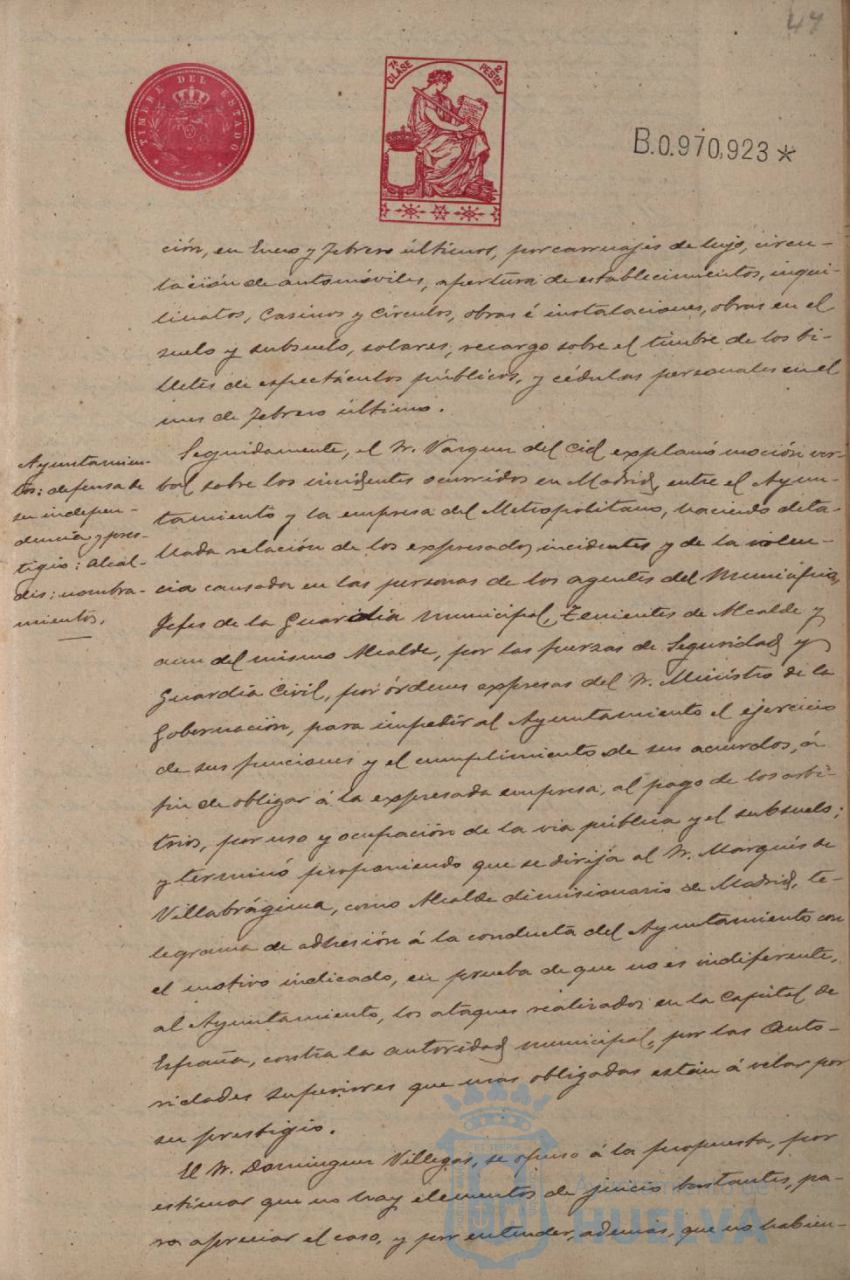 47
TIMBRE DEL ESTADO
7ª CLASE
2 PESTAS
B.0.970,923*
ción, en Enero y Febrero últimos, por carruajes de lujo, circu-
lación de automóviles, apertura de establecimientos, inqui-
linatos, Casinos y Círculos, obras é instalaciones, obras en el
suelo y subsuelo, solares, recargo sobre el timbre de los bi-
lletes de espectáculos públicos, y cédulas personales en el
mes de Febrero último.
Ayuntamien-
tos: defensa de
su indepen-
dencia y pres-
tigio: Alcal-
des: nombra-
mientos.
Seguidamente, el Sr. Vazquez del Cid, explanó moción ver-
bal sobre los incidentes ocurridos en Madrid, entre el Ayun-
tamiento y la empresa del Metropolitano, haciendo deta-
llada relación de los expresados incidentes y de la violen-
cia causada en las personas de los agentes del Municipio,
Jefes de la Guardia municipal, Tenientes de Alcalde y
aun del mismo Alcalde, por las fuerzas de Seguridad y
Guardia Civil, por órdenes expresas del Sr. Ministro de la
Gobernación, para impedir al Ayuntamiento el ejercicio
de sus funciones y el cumplimiento de sus acuerdos, á
fin de obligar á la expresada empresa, al pago de los arbi-
trios, por uso y ocupación de la vía pública y el subsuelo;
y terminó proponiendo que se dirija al Sr. Marqués de
Villabrágima, como Alcalde dimisionario de Madrid, te-
legrama de adhesión á la conducta del Ayuntamiento con
el motivo indicado, en prueba de que no es indiferente,
al Ayuntamiento, los ataques realizados en la Capital de
España, contra la autoridad municipal, por las Auto-
ridades superiores que mas obligadas están á velar por
su prestigio.
El Sr. Dominguez Villegas, se opuso á la propuesta, por
estimar que no hay elementos de juicio bastantes, pa-
ra apreciar el caso, y por entender, además, que no habien-
Ayuntamiento de
HUELVA